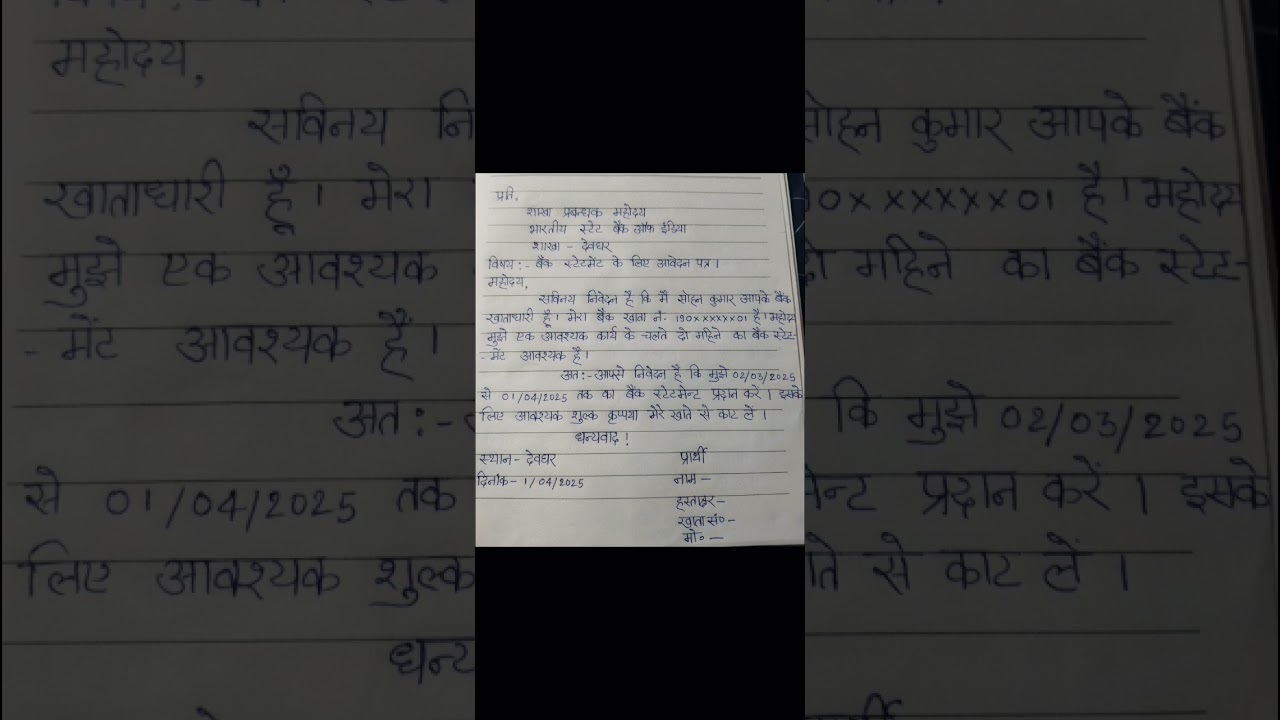 प्रति,
शाखा प्रबन्धक महोदय
भारतीय स्टेट बैंक ऑफ इंडिया
शाखा - देवघर
विषय:- बैंक स्टेटमेंट के लिए आवेदन पत्र ।
महोदय,
सविनय निवेदन है कि मैं सोहन कुमार आपके बैंक
खाताधारी हूँ। मेरा बैंक खाता नं- 190xxxxxx01 है। महोदय
मुझे एक आवश्यक कार्य के चलते दो महिने का बैंक स्टेट-
- मेंट आवश्यक है।
अत:- आपसे निवेदन है कि मुझे 02/03/2025
से 01/04/2025 तक का बैंक स्टेटमेन्ट प्रदान करें । इसके
लिए आवश्यक शुल्क कृपया मेरे खाते से काट लें ।
धन्यवाद !
स्थान - देवघर प्रार्थी
दिनांक - 1/04/2025 नाम -
हस्ताक्षर -
खाता सं० -
मो० -